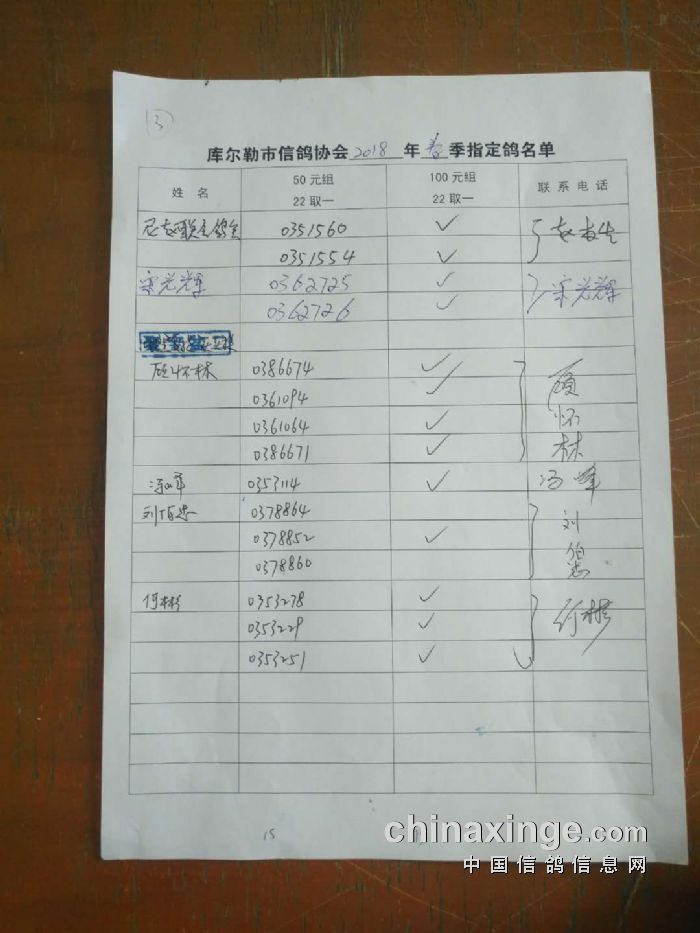 3
库尔勒市信鸽协会 2018 年 春 季指定鸽名单
姓 名 50元组 22取一 100元组 22取一 联系电话
0351560 ✓
0351554 ✓
宋光辉 0362725 ✓ 宋光辉
0362726 ✓
顾怀林 0386674 ✓ 顾
0361094 ✓
0361064 ✓ 怀
0386671 ✓ 林
冯峰 0353114 ✓ 冯峰
0378864 刘
0378852 ✓
0378860
何彬 0353278 ✓ 何彬
0353229 ✓
0353251 ✓
15
chinaxinge.com
中国信鸽信息网